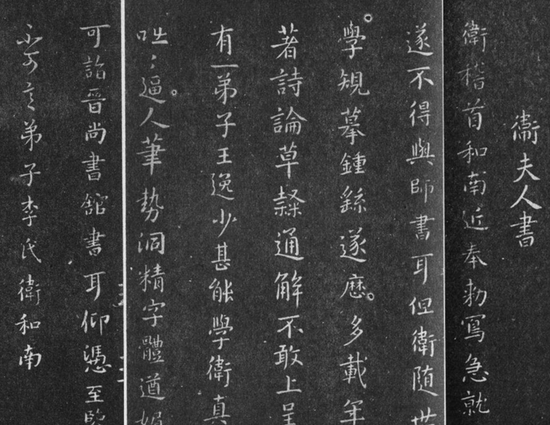 衛夫人書
衛稽首和南近奉勅寫急就
遂不得與師書耳但衛隨世
學規摹鍾繇遂歷多載年
著詩論草隸通解不敢上呈
有一弟子王逸少甚能學衛真
咄〻逼人筆勢洞精字體遒媚
可詣晉尚書館書耳仰憑至
弟子李氏衛和南